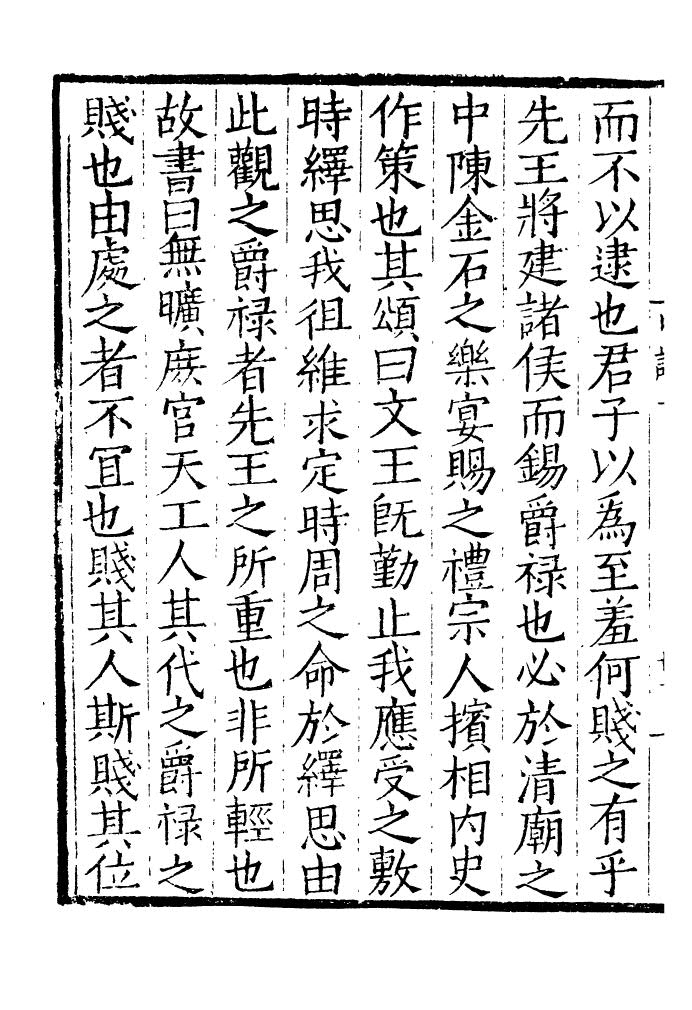 而不以逮也君子以為至羞何賤之有乎
先王將建諸侯而錫爵禄也必於清廟之
中陳金石之樂宴賜之禮宗人擯相内史
作策也其頌曰文王旣勤止我應受之敷
時繹思我徂維求定時周之命於繹思由
此觀之爵禄者先王之所重也非所輕也
故書曰無曠庻官天工人其代之爵禄之
賤也由處之者不冝也賤其人斯賤其位